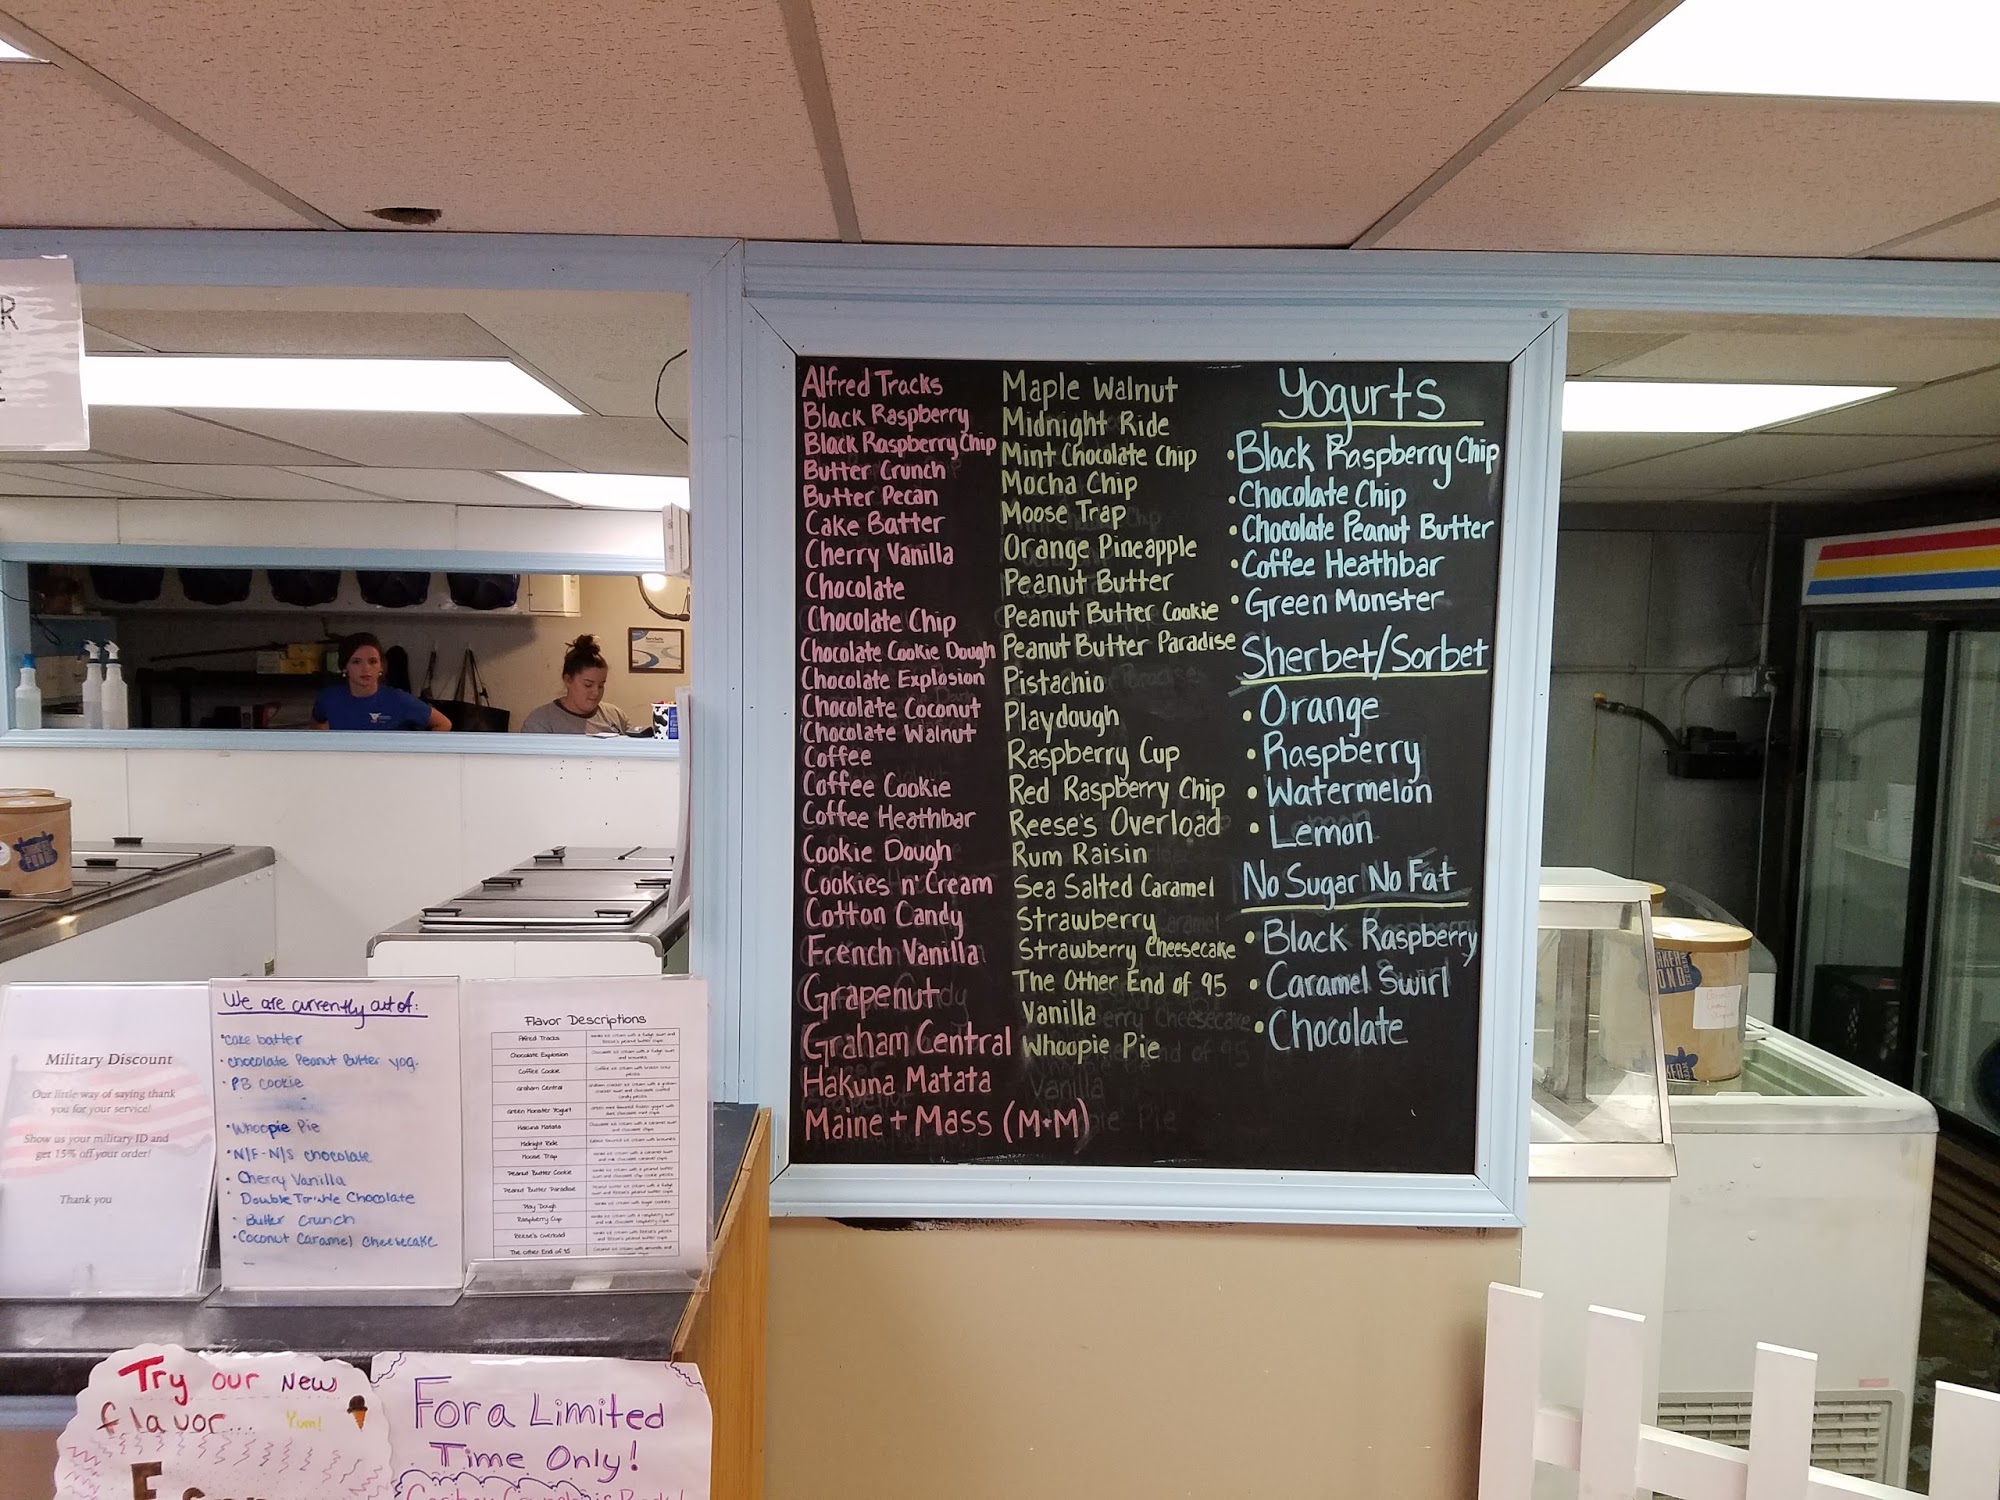 R
Alfred Tracks
Black Raspberry
Black Raspberry Chip
Butter Crunch
Butter Pecan
Cake Batter
Cherry Vanilla
Chocolate
Chocolate Chip
Chocolate Cookie Dough
Chocolate Explosion
Chocolate Coconut
Chocolate Walnut
Coffee
Coffee Cookie
Coffee Heathbar
Cookie Dough
Cookies n' Cream
Cotton Candy
French Vanilla
Grapenut
Graham Central
Hakuna Matata
Maine + Mass (M+M)
Maple Walnut
Midnight Ride
Mint Chocolate Chip
Mocha Chip
Moose Trap
Orange Pineapple
Peanut Butter
Peanut Butter Cookie
Peanut Butter Paradise
Pistachio
Playdough
Raspberry Cup
Red Raspberry Chip
Reese's Overload
Rum Raisin
Sea Salted Caramel
Strawberry
Strawberry Cheesecake
The Other End of 95
Vanilla
Whoopie Pie
Yogurts
• Black Raspberry Chip
• Chocolate Chip
• Chocolate Peanut Butter
• Coffee Heathbar
• Green Monster
Sherbet/Sorbet
• Orange
• Raspberry
• Watermelon
• Lemon
No Sugar No Fat
• Black Raspberry
• Caramel Swirl
• Chocolate
Military Discount
Our little way of saying thank
you for your service!
Show us your military ID and
get 15% off your order!
Thank you
We are currently out of:
• cake batter
• chocolate Peanut Butter yog.
• PB cookie
• Whoopie Pie
• N/F-N/S chocolate
• Cherry Vanilla
• Double Chocolate
• Butter Crunch
• Coconut Caramel Cheesecake
Flavor Descriptions
Alfred Tracks
Chocolate Explosion
Coffee Cookie
Graham Central
Green Monster Yogurt
Hakuna Matata
Midnight Ride
Moose Trap
Peanut Butter Cookie
Peanut Butter Paradise
Play Dough
Raspberry Cup
Reese's Overload
The Other End of 95
Try our New
flavor... Yum!
For a Limited
Time Only!